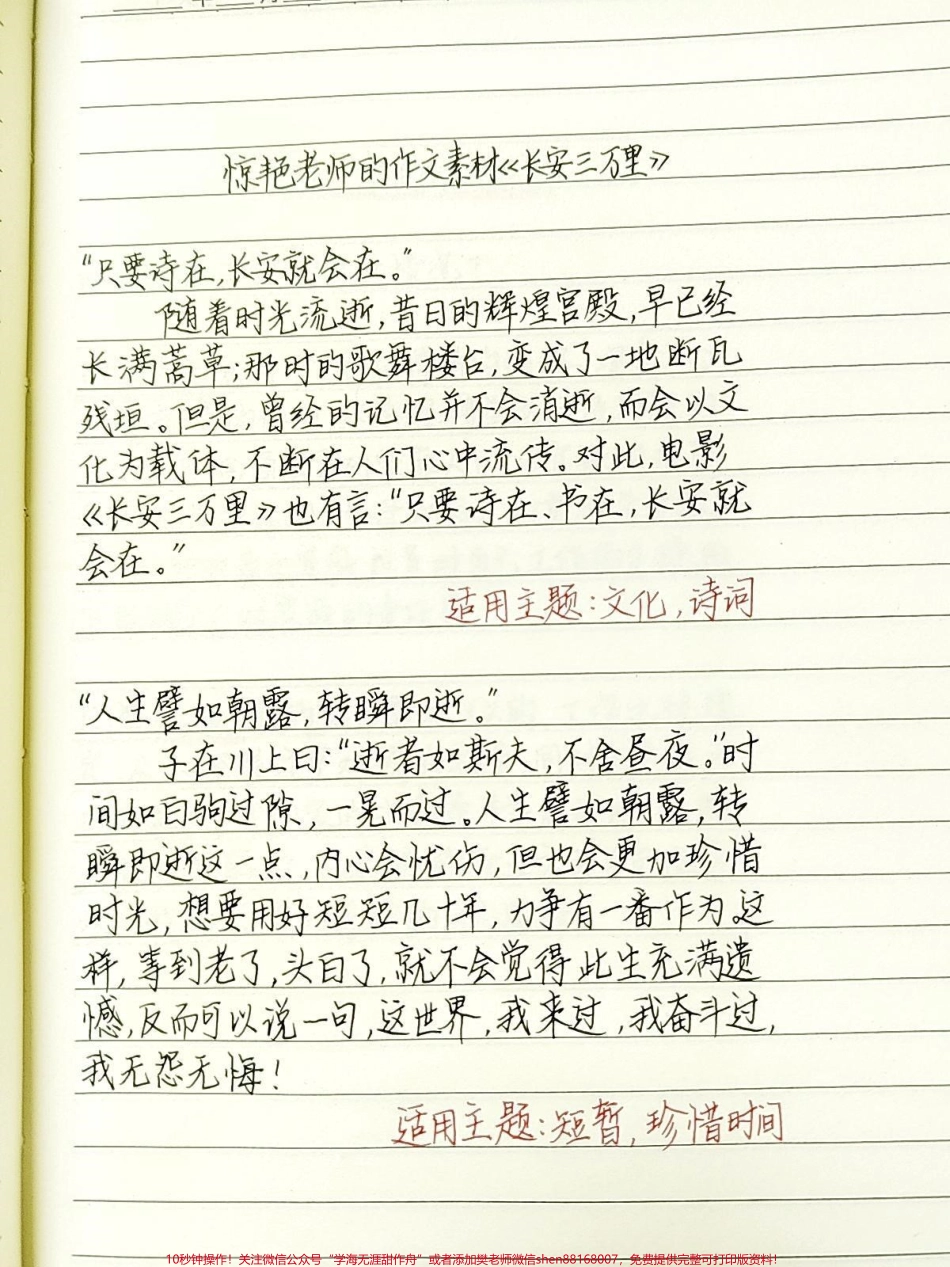 惊艳老师的作文素材《长安三万里》
“只要诗在,长安就会在。”
随着时光流逝,昔日的辉煌宫殿,早已经
长满蒿草;那时的歌舞楼台,变成了一地断瓦
残垣。但是,曾经的记忆并不会消逝,而会以文
化为载体,不断在人们心中流传。对此,电影
《长安三万里》也有言:“只要诗在、书在,长安就
会在。”
适用主题:文化,诗词
“人生譬如朝露,转瞬即逝。”
子在川上曰:“逝者如斯夫,不舍昼夜。”时
间如白驹过隙,一晃而过。人生譬如朝露,转
瞬即逝这一点,内心会忧伤,但也会更加珍惜
时光,想要用好短短几十年,力争有一番作为。这
样,等到老了,头白了,就不会觉得此生充满遗
憾,反而可以说一句,这世界,我来过,我奋斗过,
我无怨无悔!
适用主题:短暂,珍惜时间
10秒钟操作!关注微信公众号“学海无涯甜作舟”或者添加樊老师微信shen88168007,免费提供完整可打印版资料!